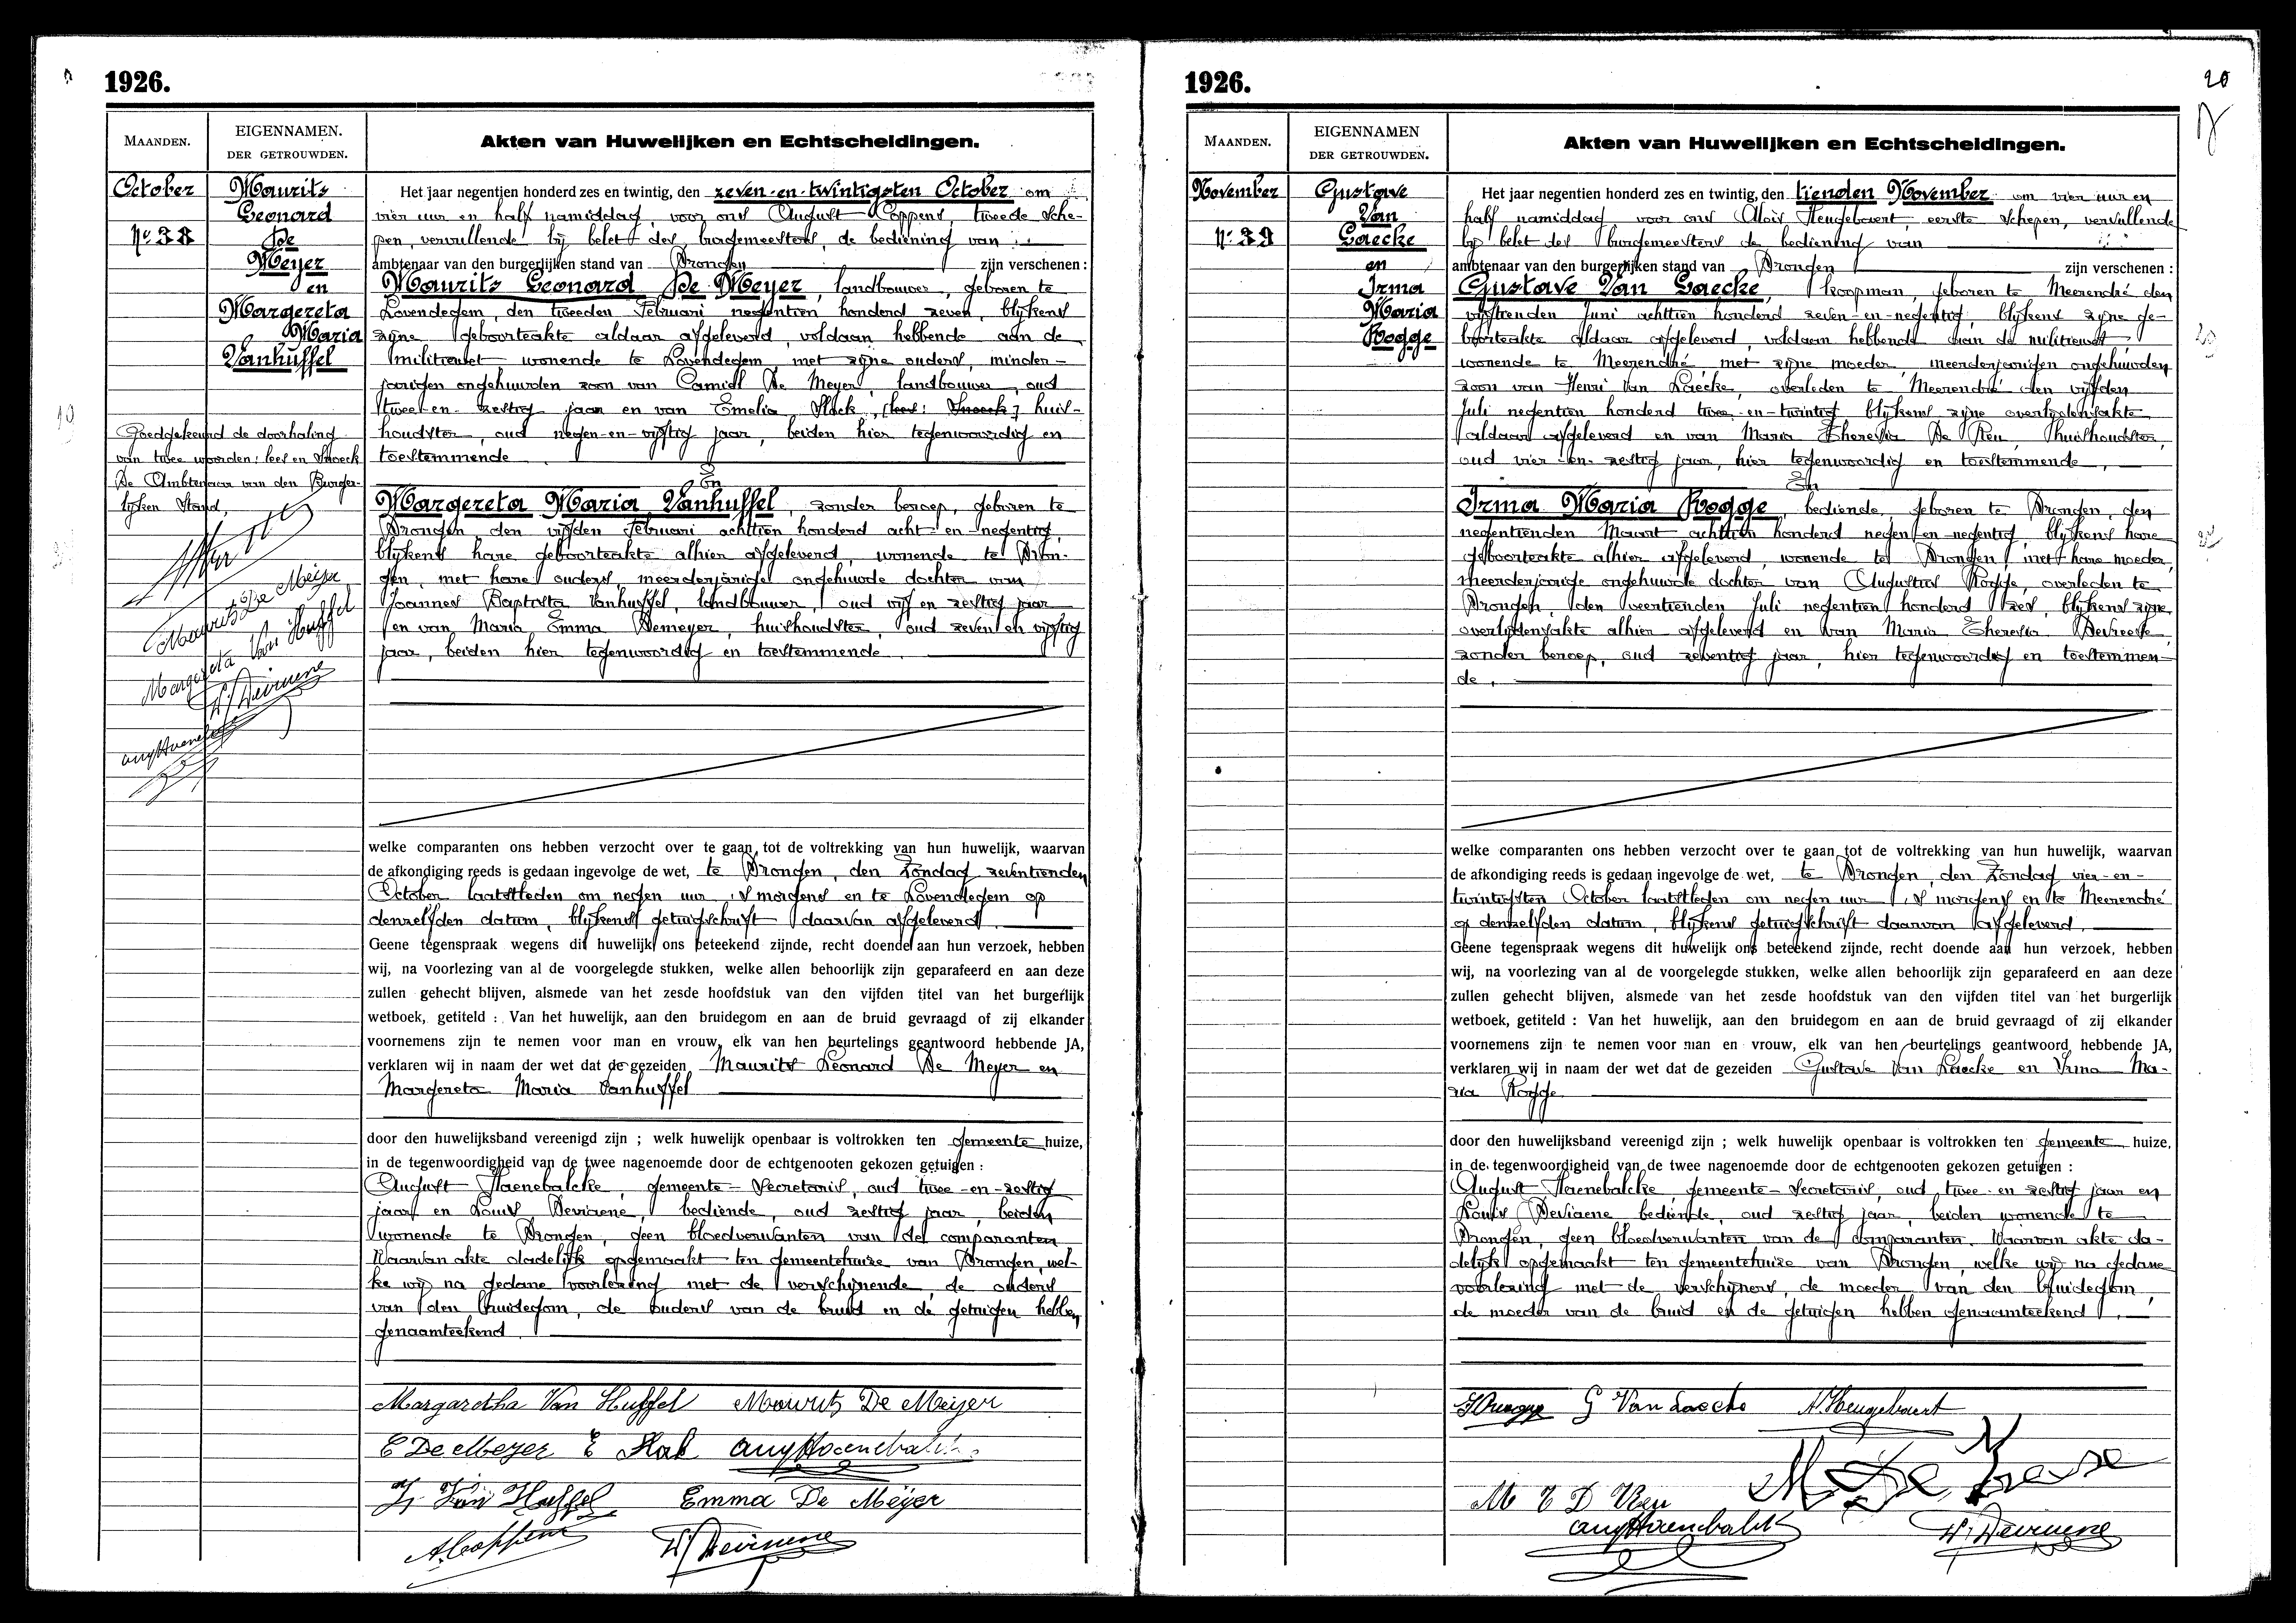 1926.
MAANDEN.
EIGENNAMEN.
DER GETROUWDEN.
Akten van Huwelijken en Echtscheidingen.
October
Nº 38
Maurits
Leonard
De
Meyer
en
Margereta
Maria
Vanhuffel
Goedgekeurd de doorhaling
van twee woorden: lees en Snoeck
De Ambtenaar van den Burger-
lijken Stand,
Maurits De Meijer
Margareta Van Huffel
Het jaar negentien honderd zes en twintig, den zeven-en-twintigsten October om
vier uur en half namiddag, voor ons August Coppens, tweede sche-
pen, vervullende bij belet des burgemeesters, de bediening van
ambtenaar van den burgerlijken stand van Drongen zijn verschenen :
Maurits Leonard De Meyer, landbouwer, geboren te
Lovendegem, den tweeden Februari negentien honderd zeven, blijkens
zijne geboorteakte aldaar afgeleverd, voldaan hebbende aan de
militiewet wonende te Lovendegem met zijne ouders, minder-
jarigen ongehuwden zoon van Camiel De Meyer, landbouwer, oud
twee-en-zestig jaar en van Emelia Slock, (lees: Snoeck) huis-
houdster, oud negen-en-vijftig jaar, beiden hier tegenwoordig en
toestemmende
En
Margereta Maria Vanhuffel, zonder beroep, geboren te
Drongen den vijfden Februari achttien honderd acht-en-negentig,
blijkens hare geboorteakte alhier afgeleverd, wonende te Dron-
gen, met hare ouders, meerderjarige ongehuwde dochter van
Joannes Baptista Vanhuffel, landbouwer, oud vijf en zestig jaar
en van Maria Emma Demeyer, huishoudster, oud zeven en vijftig
jaar, beiden hier tegenwoordig en toestemmende.
welke comparanten ons hebben verzocht over te gaan tot de voltrekking van hun huwelijk, waarvan
de afkondiging reeds is gedaan ingevolge de wet, te Drongen, den Zondag zeventienden
October laatstleden om negen uur 's morgens en te Lovendegem op
denzelfden datum, blijkens getuigschrift daarvan afgeleverd.
Geene tegenspraak wegens dit huwelijk ons beteekend zijnde, recht doende aan hun verzoek, hebben
wij, na voorlezing van al de voorgelegde stukken, welke allen behoorlijk zijn geparafeerd en aan deze
zullen gehecht blijven, alsmede van het zesde hoofdstuk van den vijfden titel van het burgerlijk
wetboek, getiteld : Van het huwelijk, aan den bruidegom en aan de bruid gevraagd of zij elkander
voornemens zijn te nemen voor man en vrouw, elk van hen beurtelings geantwoord hebbende JA,
verklaren wij in naam der wet dat de gezeiden Maurits Leonard De Meyer en
Margereta Maria Vanhuffel
door den huwelijksband vereenigd zijn ; welk huwelijk openbaar is voltrokken ten gemeente huize,
in de tegenwoordigheid van de twee nagenoemde door de echtgenooten gekozen getuigen :
August Haenebalcke, gemeente-secretaris, oud twee-en-zestig
jaar en Louis Deviaene, bediende, oud zestig jaar, beiden
wonende te Drongen, geen bloedverwanten van de comparanten
Waarvan akte dadelijk opgemaakt ten gemeentehuize van Drongen, wel-
ke wij na gedane voorlezing met de verschijnende, de ouders
van den bruidegom, de ouders van de bruid en de getuigen hebben
genaamteekend.
Margaretha Van Huffel Maurits De Meijer
C De Meyer E Slock Aug Haenebalcke
Van Huffel Emma De Meijer
A. Coppens L. Deviaene
1926.
20
MAANDEN.
EIGENNAMEN
DER GETROUWDEN.
Akten van Huwelijken en Echtscheidingen.
November
Nº 39
Gustave
Van
Laecke
en
Irma
Maria
Rogge
Het jaar negentien honderd zes en twintig, den tienden November om vier uur en
half namiddag voor ons Aloïs Heugebaert eerste schepen, vervullende
bij belet des burgemeesters de bediening van
ambtenaar van den burgerlijken stand van Drongen zijn verschenen :
Gustave Van Laecke, koopman, geboren te Meerendré den
vijftienden Juni achttien honderd zeven-en-negentig, blijkens zijne ge-
boorteakte aldaar afgeleverd, voldaan hebbende aan de militiewet,
wonende te Meerendré met zijne moeder, meerderjarigen ongehuwden
zoon van Henri Van Laecke, overleden te Meerendré den vijfden
Juli negentien honderd twee-en-twintig blijkens zijne overlijdensakte
aldaar afgeleverd en van Maria Theresia De Reu, huishoudster,
oud vier-en-zestig jaar, hier tegenwoordig en toestemmende,
En
Irma Maria Rogge, bediende, geboren te Drongen, den
negentienden Maart achttien honderd negen-en-negentig, blijkens hare
geboorteakte alhier afgeleverd, wonende te Drongen, met hare moeder,
meerderjarige ongehuwde dochter van Augustus Rogge, overleden te
Drongen, den veertienden Juli negentien honderd zes, blijkens zijne
overlijdensakte alhier afgeleverd en van Maria Theresia Devreese,
zonder beroep, oud zeventig jaar, hier tegenwoordig en toestemmen-
de.
welke comparanten ons hebben verzocht over te gaan tot de voltrekking van hun huwelijk, waarvan
de afkondiging reeds is gedaan ingevolge de wet, te Drongen, den Zondag vier-en-
twintigsten October laatstleden om negen uur 's morgens en te Meerendré
op denzelfden datum, blijkens getuigschrift daarvan afgeleverd.
Geene tegenspraak wegens dit huwelijk ons beteekend zijnde, recht doende aan hun verzoek, hebben
wij, na voorlezing van al de voorgelegde stukken, welke allen behoorlijk zijn geparafeerd en aan deze
zullen gehecht blijven, alsmede van het zesde hoofdstuk van den vijfden titel van het burgerlijk
wetboek, getiteld : Van het huwelijk, aan den bruidegom en aan de bruid gevraagd of zij elkander
voornemens zijn te nemen voor man en vrouw, elk van hen beurtelings geantwoord hebbende JA,
verklaren wij in naam der wet dat de gezeiden Gustave Van Laecke en Irma Ma-
ria Rogge
door den huwelijksband vereenigd zijn ; welk huwelijk openbaar is voltrokken ten gemeente huize,
in de tegenwoordigheid van de twee nagenoemde door de echtgenooten gekozen getuigen :
August Haenebalcke, gemeente-secretaris, oud twee-en zestig jaar en
Louis Deviaene bediende, oud zestig jaar, beiden wonende te
Drongen, geen bloedverwanten van de comparanten. Waarvan akte da-
delijk opgemaakt ten gemeentehuize van Drongen, welke wij na gedane
voorlezing met de verschijners, de moeder van den bruidegom,
de moeder van de bruid en de getuigen hebben genaamteekend.
G Van Laecke A. Heugebaert
M T D Reu M De Vreese
Aug Haenebalcke L. Deviaene